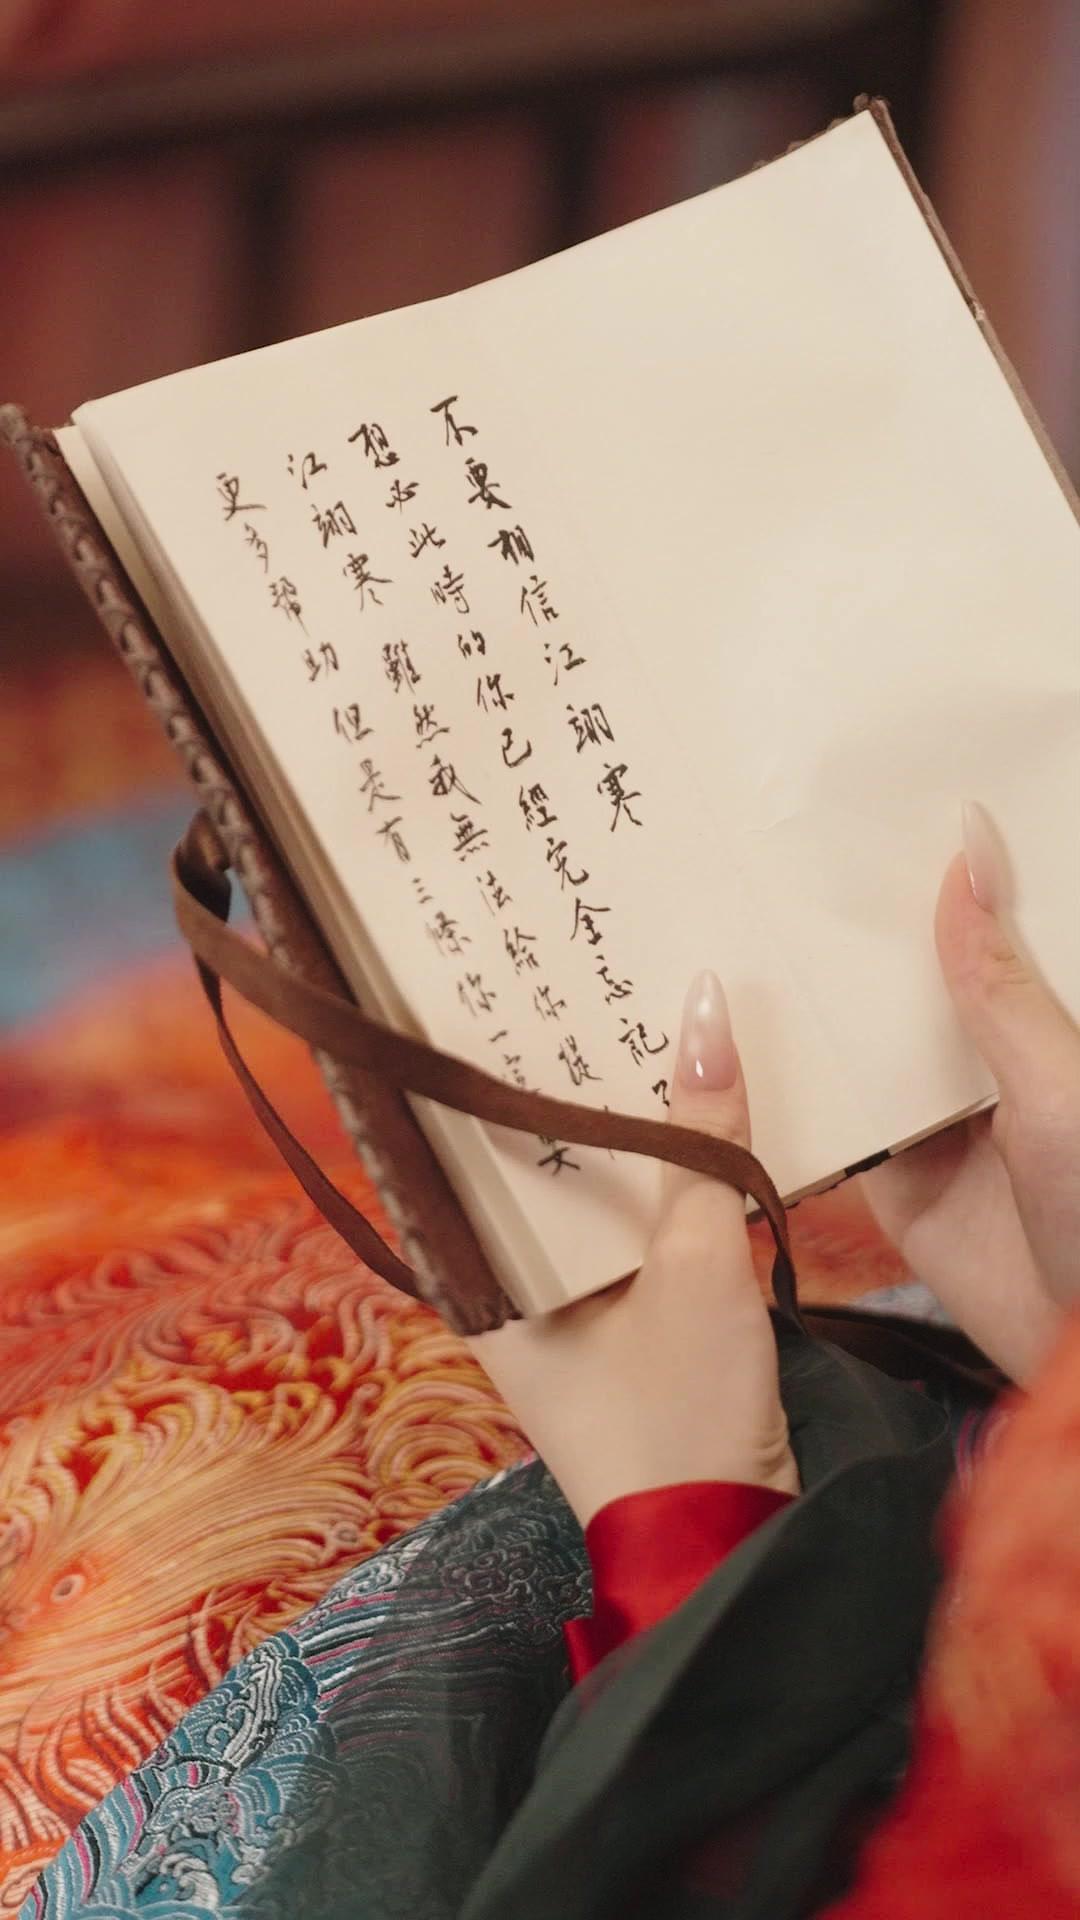 不要相信江翊寒
想必此時的你已經完全忘記了
江翊寒 雖然我無法給你提
更多幫助 但是有三條你一定要